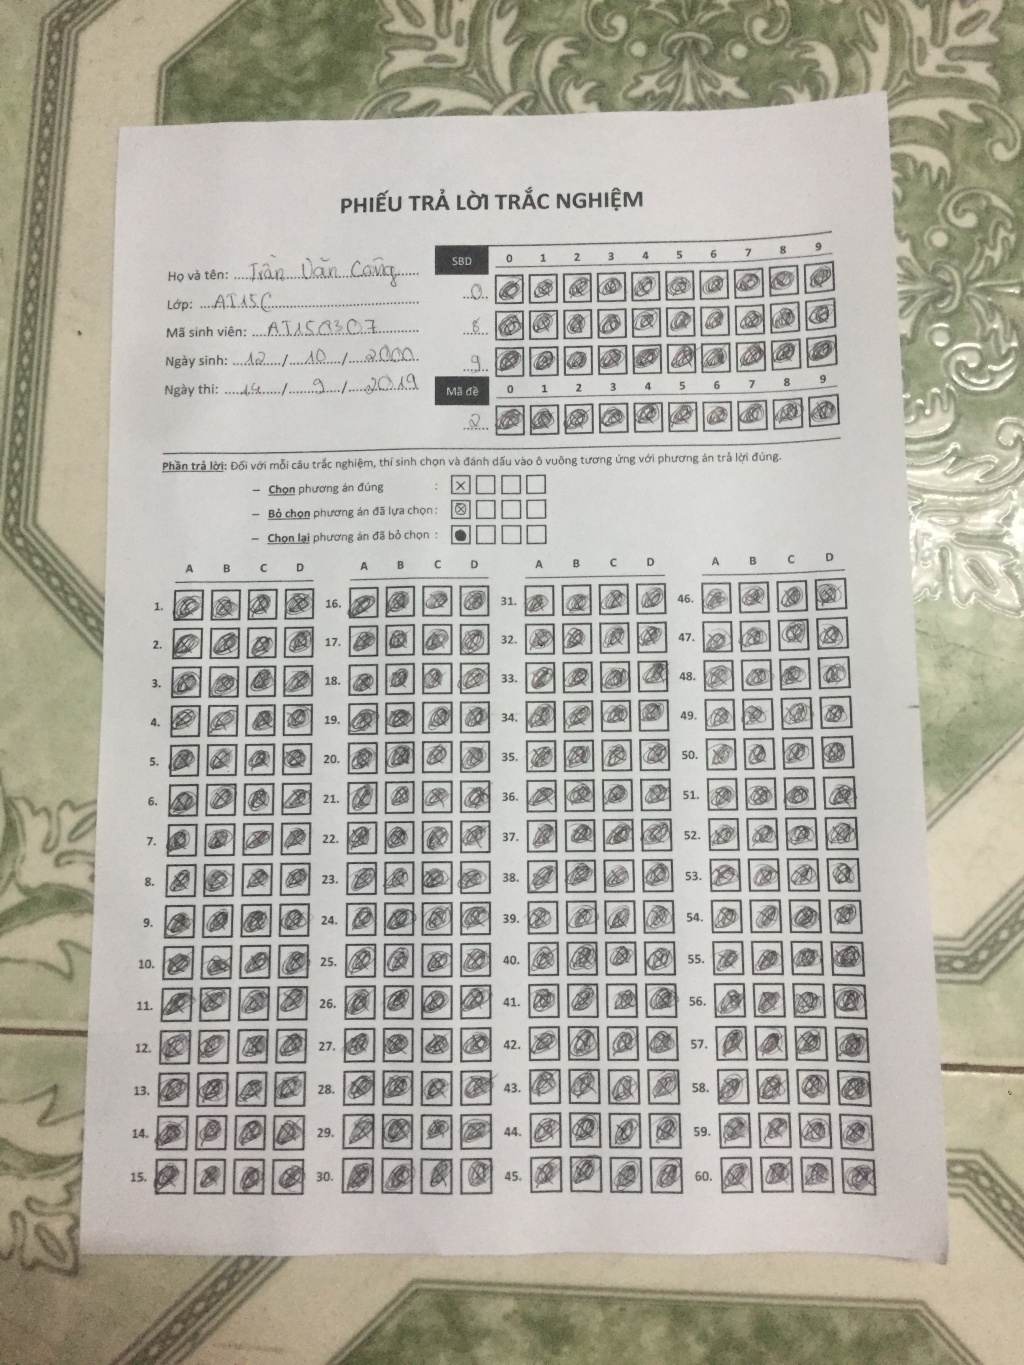 PHIẾU TRẢ LỜI TRẮC NGHIỆM
Họ và tên: Trần Văn
Lớp: AT15C
Mã sinh viên: AT150307
Ngày sinh: 12 / 10 / 2000
Ngày thi: 14 / 9 / 2019
SBD 0 1 2 3 4 5 6 7 8 9
0
8
9
Mã đề 0 1 2 3 4 5 6 7 8 9
2
Phần trả lời: Đối với mỗi câu trắc nghiệm, thí sinh chọn và đánh dấu vào ô vuông tương ứng với phương án trả lời đúng.
– Chọn phương án đúng :
– Bỏ chọn phương án đã lựa chọn :
– Chọn lại phương án đã bỏ chọn :
A B C D
1.
2.
3.
4.
5.
6.
7.
8.
9.
10.
11.
12.
13.
14.
15.
A B C D
16.
17.
18.
19.
20.
21.
22.
23.
24.
25.
26.
27.
28.
29.
30.
A B C D
31.
32.
33.
34.
35.
36.
37.
38.
39.
40.
41.
42.
43.
44.
45.
A B C D
46.
47.
48.
49.
50.
51.
52.
53.
54.
55.
56.
57.
58.
59.
60.